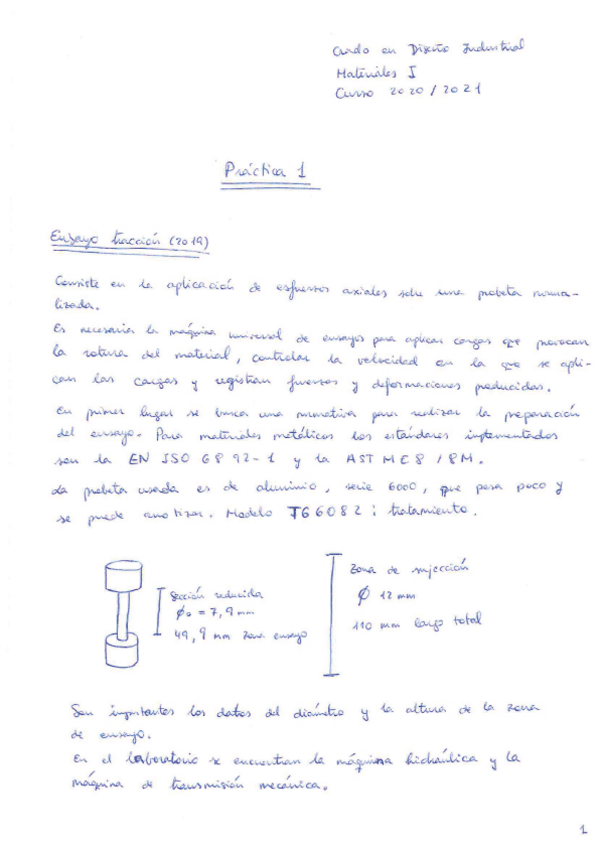 Grado en Diseño Industrial
Materiales I
Curso 2020/2021
Práctica 1
Ensayo tracción (2019)
Consiste en la aplicación de esfuerzos axiales sobre una probeta norma-
lizada.
Es necesaria la máquina universal de ensayos para aplicar cargas que provocan
la rotura del material, controlar la velocidad en la que se apli-
can las cargas y registran fuerzas y deformaciones producidas.
En primer lugar se busca una normativa para realizar la preparación
del ensayo. Para materiales metálicos los estándares implementados
son la EN ISO 6892-1 y la ASTM E8/8M.
La probeta usada es de aluminio, serie 6000, que pesa poco y
se puede anotizar. Modelo T66082: tratamiento.
Sección reducida
Ø₀ = 7,9 mm
49,9 mm zona ensayo
Zona de sujección
Ø 12 mm
110 mm largo total
Son importantes los datos del diámetro y la altura de la zona
de ensayo.
En el laboratorio se encuentran la máquina hidráulica y la
máquina de transmisión mecánica.
1